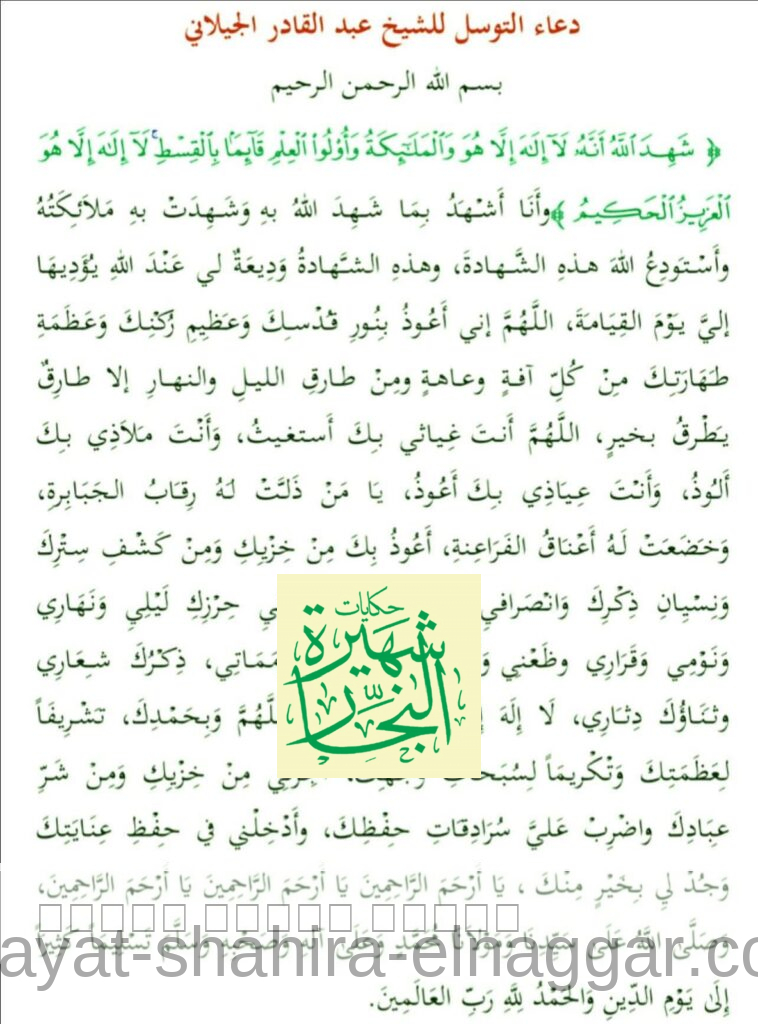 دعاء التوسل للشيخ عبد القادر الجيلاني
بسم الله الرحمن الرحيم
﴿ شَهِدَ ٱللَّهُ أَنَّهُۥ لَآ إِلَٰهَ إِلَّا هُوَ وَٱلْمَلَٰٓئِكَةُ وَأُو۟لُوا۟ ٱلْعِلْمِ قَآئِمًۢا بِٱلْقِسْطِ ۚ لَآ إِلَٰهَ إِلَّا هُوَ
ٱلْعَزِيزُ ٱلْحَكِيمُ ﴾ وأَنَا أَشْهَدُ بِمَا شَهِدَ اللهُ بهِ وَشَهِدَتْ بهِ مَلاَئِكَتُهُ
وأَسْتَودِعُ اللهَ هذهِ الشَّهادةَ، وهذهِ الشَّهادةُ وَدِيعَةٌ لي عَنْدَ اللهِ يُؤَدِيهَا
إليَّ يَوْمَ القِيَامَةَ، اللَّهُمَّ إني أَعُوذُ بِنُورِ قُدْسكَ وَعَظِيمِ رُكْنِكَ وَعَظَمَةِ
طَهَارَتِكَ مِنْ كُلِّ آفةٍ وعاهةٍ ومِنْ طارقِ الليلِ والنهارِ إلا طارِقٌ
يَطْرقُ بخيرٍ، اللَّهُمَّ أَنتَ غِياثي بكَ أَستغيثُ، وَأَنْتَ مَلاَذِي بكَ
أَلوُذُ، وَأَنْتَ عِيَاذِي بكَ أَعُوذُ، يا مَنْ ذَلَّتْ لهُ رِقابُ الجَبَابِرةِ،
وَخَضَعَتْ لَهُ أَعْنَاقُ الفَرَاعِنةِ، أَعُوذُ بِكَ مِنْ خِزْيكِ وَمِنْ كَشْفِ سِتْركَ
وَنِسْيِانِ ذِكْرِكَ وَانْصَرافي حِرْزِكِ لَيْلِيِ وَنَهَارِي
وَنَوْمِي وَقَرَارِي وظَعْنِي ذِكْرُكَ شعِارِي
وثنَاؤُكَ دِثارِي، لَا إِلَهَ وَبِحَمْدِكَ، تَشْريفَاً
لِعَظَمَتِكَ وَتْكْريمَاً مِنْ خِزْيكِ وَمِنْ شَرِّ
عِبَادِكَ واضْرِبْ عَليَّ سُرَادِقاتِ حفِْظِكَ، وأَدْخِلْني في حفِْظِ عِنَايَتِكَ
وَجُدْ لِي بِخَيْرٍ مِنْكَ ، يَا أَرْحَمَ الرَّاحِمِينَ يَا أَرْحَمَ الرَّاحِمِينَ يَا أَرْحَمَ الرَّاحِمِينَ،
وَصَلَّى اللَّهُ عَلَى سَيِّدِنَا وَمَوْلَانَا مُحَمَّدٍ وَعَلَى آلِهِ وَصَحْبِهِ وَسَلَّمَ تَسْلِيمَاً كَثِيرَاً
إِلَىٰ يَوْمِ الدِّينِ وَالْحَمْدُ لِلَّهِ رَبِّ العَالَمِينَ.
حكايات
شهيرة
النجار
ayat-shahira-elnaggar.co